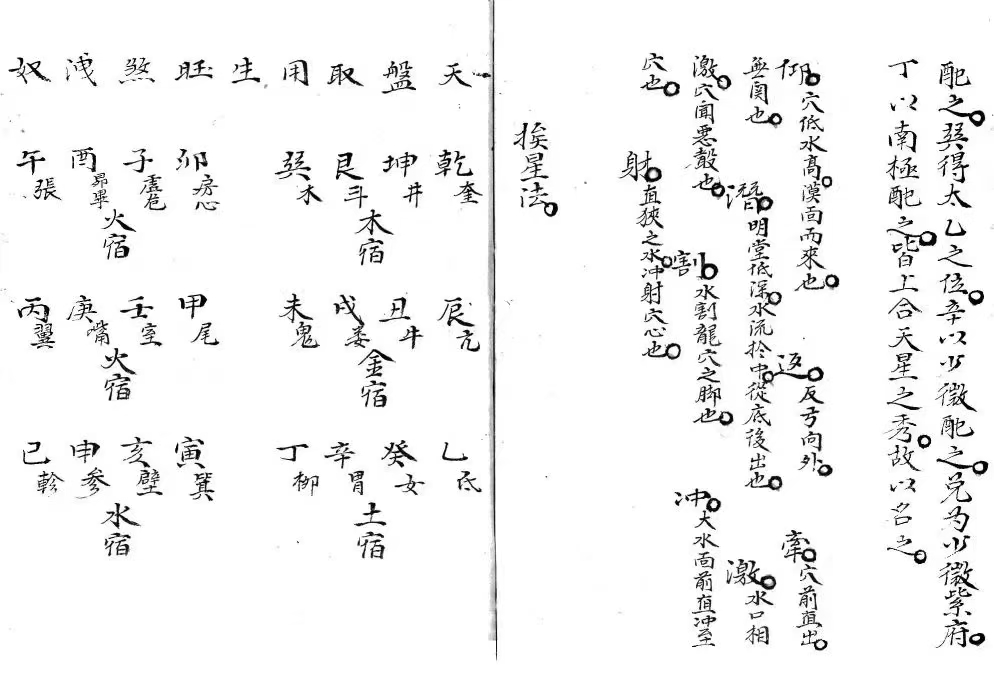 配之。巽得太乙之位。辛以少微配之。兑为少微紫府。
丁以南極配之。皆上合天星之秀。故以名之。
仰。穴低水高。漠高而來也。返。反弓向外。牽。穴前直出。
無関也。潛。明堂低深。水流於中。從底後出也。激。水口相
激。穴聞悪聲也。割。水割龍穴之脚也。冲。大水面前直冲至
穴也。射。直狹之水。冲射穴心也。
挨星法。
天盤取用生旺煞洩奴
乾奎 坤井 艮斗 巽木 卯房心 子虛危 酉昴畢 午張
木宿 火宿
辰亢 丑牛 戌婁 未鬼 甲尾 壬室 庚嘴 丙翼
金宿 火宿
乙氐 癸女 辛胃 丁柳 寅箕 亥壁 申參 巳軫
土宿 水宿